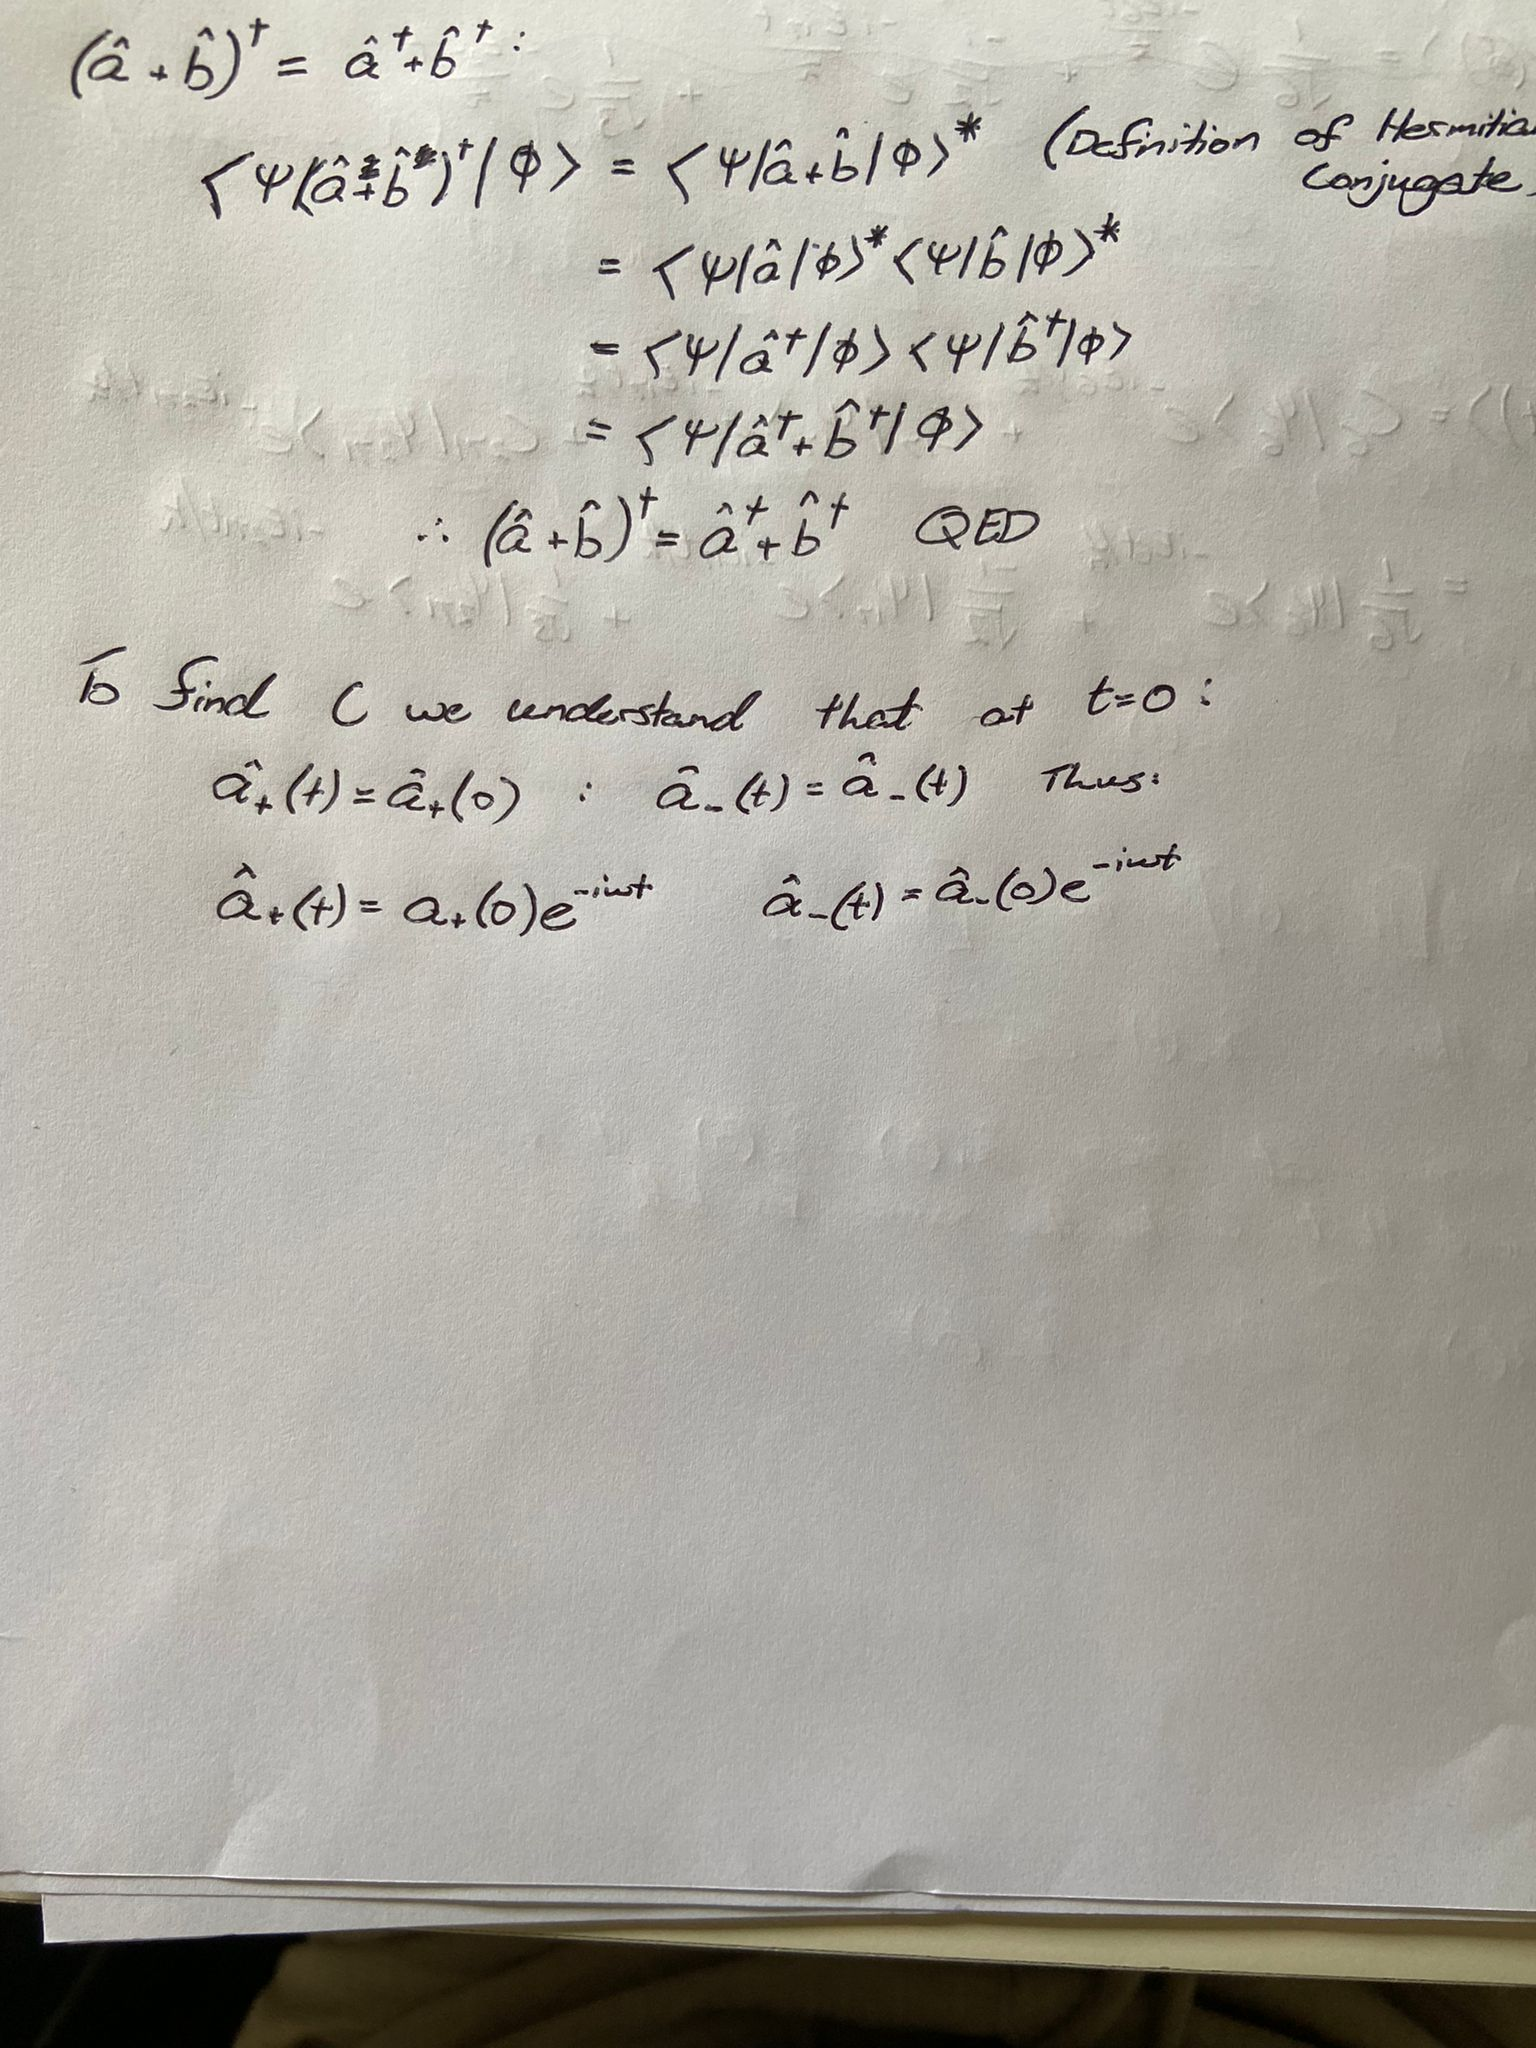 (â + b̂)† = â† + b̂† :
⟨Ψ(â + b̂)†|Φ⟩ = ⟨Ψ|â + b̂|Φ⟩* (Definition of Hermitian
Conjugate
= ⟨Ψ|â|Φ⟩* ⟨Ψ|b̂|Φ⟩*
= ⟨Ψ|â†|Φ⟩ ⟨Ψ|b̂†|Φ⟩
= ⟨Ψ|â† + b̂†|Φ⟩
∴ (â + b̂)† = â† + b̂† QED
To find C we understand that at t=0 :
â₊(t) = â₊(0) : â₋(t) = â₋(t) Thus:
â₊(t) = a₊(0)e^{-iωt} â₋(t) = â₋(0)e^{-iωt}